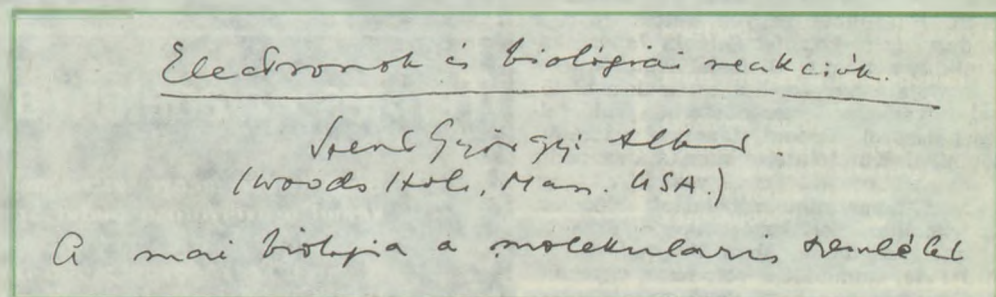 Electronok és biológiai reakciók.
Szent Györgyi Albert.
(Woods Hole, Mass. USA.)
A mai biologia a molekularis szemlélet